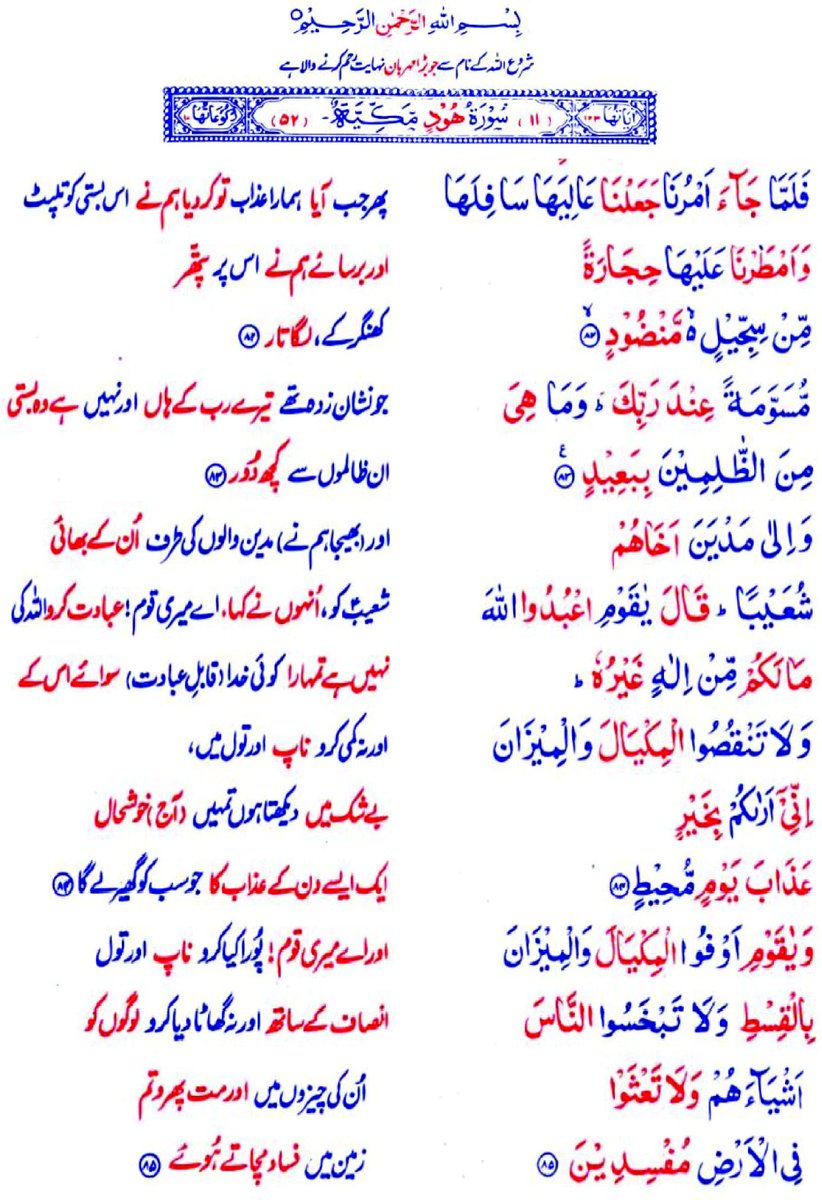 بِسْمِ اللهِ الرَّحْمٰنِ الرَّحِيْمِ
شروع اللہ کے نام سے جو بڑا مہربان نہایت رحم کرنے والا ہے
اٰيَاتُهَا ۱۲۳ (۱۱) سُوْرَةُ هُوْدٍ مَكِّيَّةٌ (۵۲) رُكُوْعَاتُهَا ۱۰
فَلَمَّا جَآءَ اَمْرُنَا جَعَلْنَا عَالِيَهَا سَافِلَهَا پھر جب آیا ہمارا عذاب تو کر دیا ہم نے اس بستی کو تلپٹ
وَاَمْطَرْنَا عَلَيْهَا حِجَارَةً اور برسائے ہم نے اس پر پتھر
مِّنْ سِجِّيْلٍ ۙ مَّنْضُوْدٍ ۙ ﴿۸۲﴾ کھنگر کے، لگاتار ﴿۸۲﴾
مُّسَوَّمَةً عِنْدَ رَبِّكَ ؕ وَمَا هِىَ جو نشان زدہ تھے تیرے رب کے ہاں اور نہیں ہے وہ بستی
مِنَ الظّٰلِمِيْنَ بِبَعِيْدٍ ﴿۸۳﴾ ع ان ظالموں سے کچھ دُور ﴿۸۳﴾
وَاِلٰى مَدْيَنَ اَخَاهُمْ اور (بھیجا ہم نے) مدین والوں کی طرف اُن کے بھائی
شُعَيْبًا ؕ قَالَ يٰقَوْمِ اعْبُدُوا اللهَ شعیبؑ کو، اُنہوں نے کہا، اے میری قوم! عبادت کرو اللہ کی
مَا لَكُمْ مِّنْ اِلٰهٍ غَيْرُهٗ ؕ نہیں ہے تمہارا کوئی خدا (قابلِ عبادت) سوائے اس کے
وَلَا تَنْقُصُوا الْمِكْيَالَ وَالْمِيْزَانَ اور نہ کمی کرو ناپ اور تول میں،
اِنِّىْٓ اَرٰىكُمْ بِخَيْرٍ بے شک میں دیکھتا ہوں تمہیں (آج) خوشحال
عَذَابَ يَوْمٍ مُّحِيْطٍ ﴿۸۴﴾ ایک ایسے دن کے عذاب کا جو سب کو گھیر لے گا ﴿۸۴﴾
وَيٰقَوْمِ اَوْفُوا الْمِكْيَالَ وَالْمِيْزَانَ اور اے میری قوم! پُورا کیا کرو ناپ اور تول
بِالْقِسْطِ وَلَا تَبْخَسُوا النَّاسَ انصاف کے ساتھ اور نہ گھاٹا دیا کرو لوگوں کو
اَشْيَآءَهُمْ وَلَا تَعْثَوْا اُن کی چیزوں میں اور مت پھرو تم
فِى الْاَرْضِ مُفْسِدِيْنَ ﴿۸۵﴾ زمین میں فساد مچاتے ہُوئے ﴿۸۵﴾